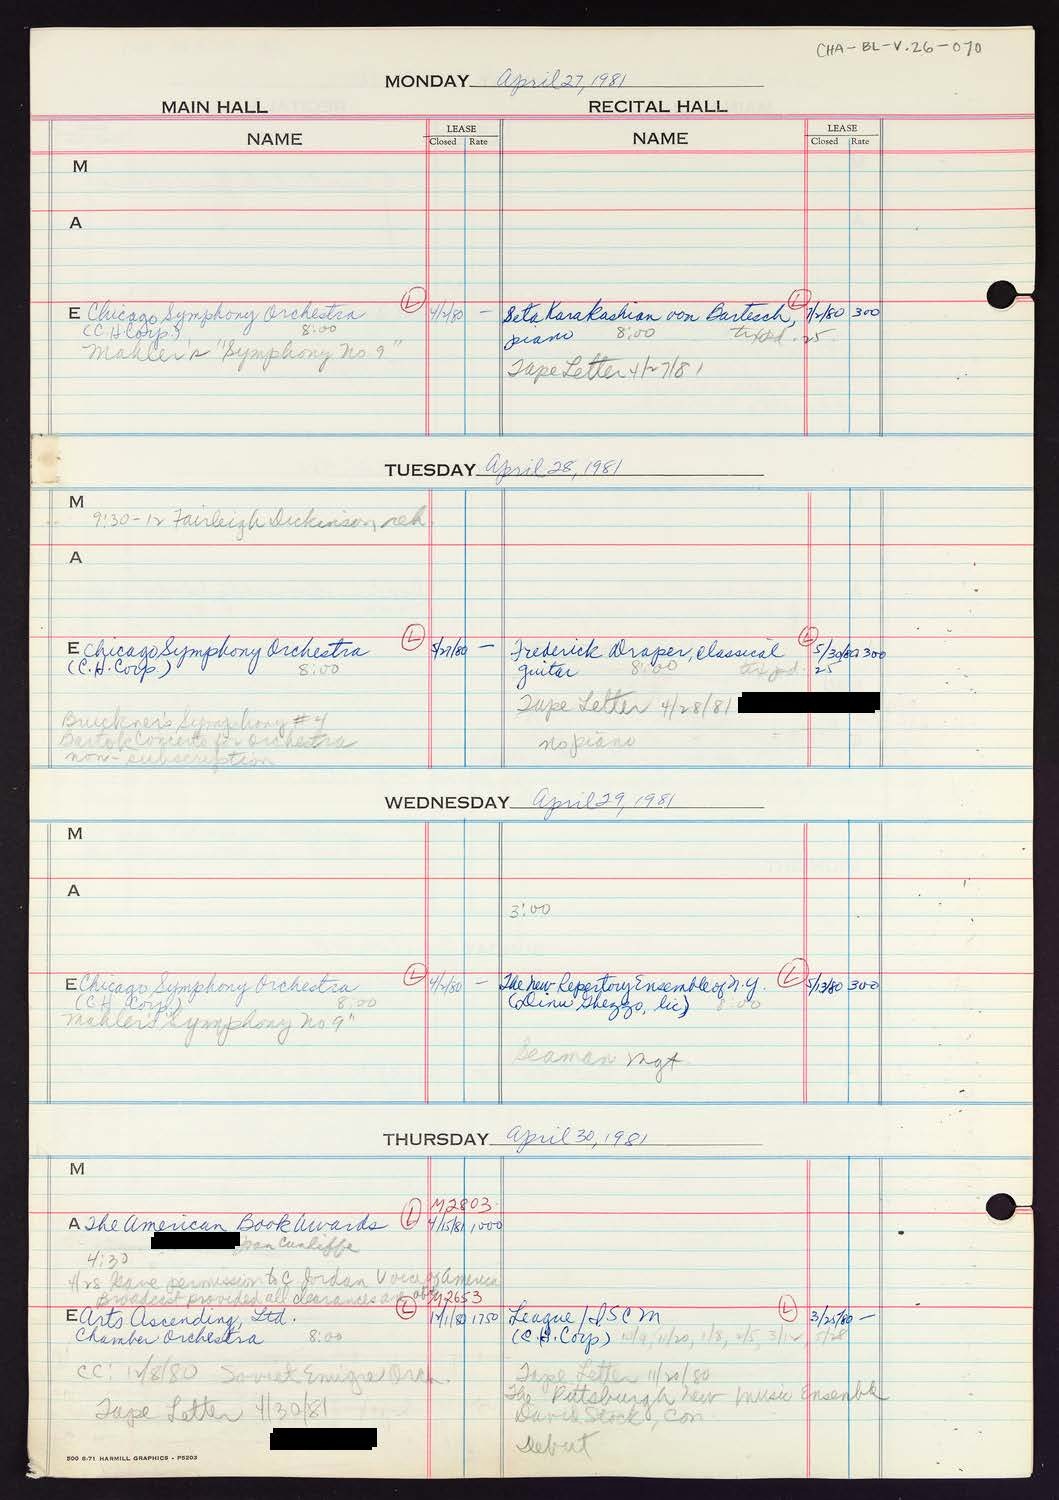 CHA-BL-V.26-070
MONDAY April 27, 1981
MAIN HALL RECITAL HALL
NAME LEASE Closed Rate NAME LEASE Closed Rate
M
A
E Chicago Symphony Orchestra L 4/2/80 —
(C.H. Corp.) 8:00
Mahler's "Symphony No 9"
Seta Karakashian von Bartesch, L 7/2/80 300
piano 8:00 25
Tape Letter 4/27/81
TUESDAY April 28, 1981
M
9:30-12 Fairleigh Dickinson, reh.
A
E Chicago Symphony Orchestra L 5/27/80 —
(C.H. Corp) 8:00
Bruckner's Symphony #4
Bartok Concerto for Orchestra
non-subscription
Frederick Draper, classical L 5/30/80 300
guitar 8:00 25
Tape Letter 4/28/81
no piano
WEDNESDAY April 29, 1981
M
A
3:00
E Chicago Symphony Orchestra L 4/2/80 —
(C.H. Corp) 8:00
Mahler's "Symphony No 9"
The New Repertory Ensemble of N.Y. L 5/13/80 300
(Dinu Ghezzo, lic) 8:00
Seaman Mgt
THURSDAY April 30, 1981
M
M2803
A The American Book Awards L 4/15/81 1,000
Joan Cunliffe
4:30
4/28 Gave permission to C Jordan Voice of America
Broadcast provided all clearances are obt.
M2653
E Arts Ascending, Ltd. L 1750
Chamber Orchestra 8:00
CC: 12/8/80 Soviet Emigre Orch.
Tape Letter 4/30/81
League/ISCM L 3/25/80 —
(C.H. Corp) 11/20, 1/8, 2/5, 3/12,
Tape Letter 11/20/80
The Pittsburgh New Music Ensemble
David Stock, Con
Debut
500 8-71 HARMILL GRAPHICS - P5203